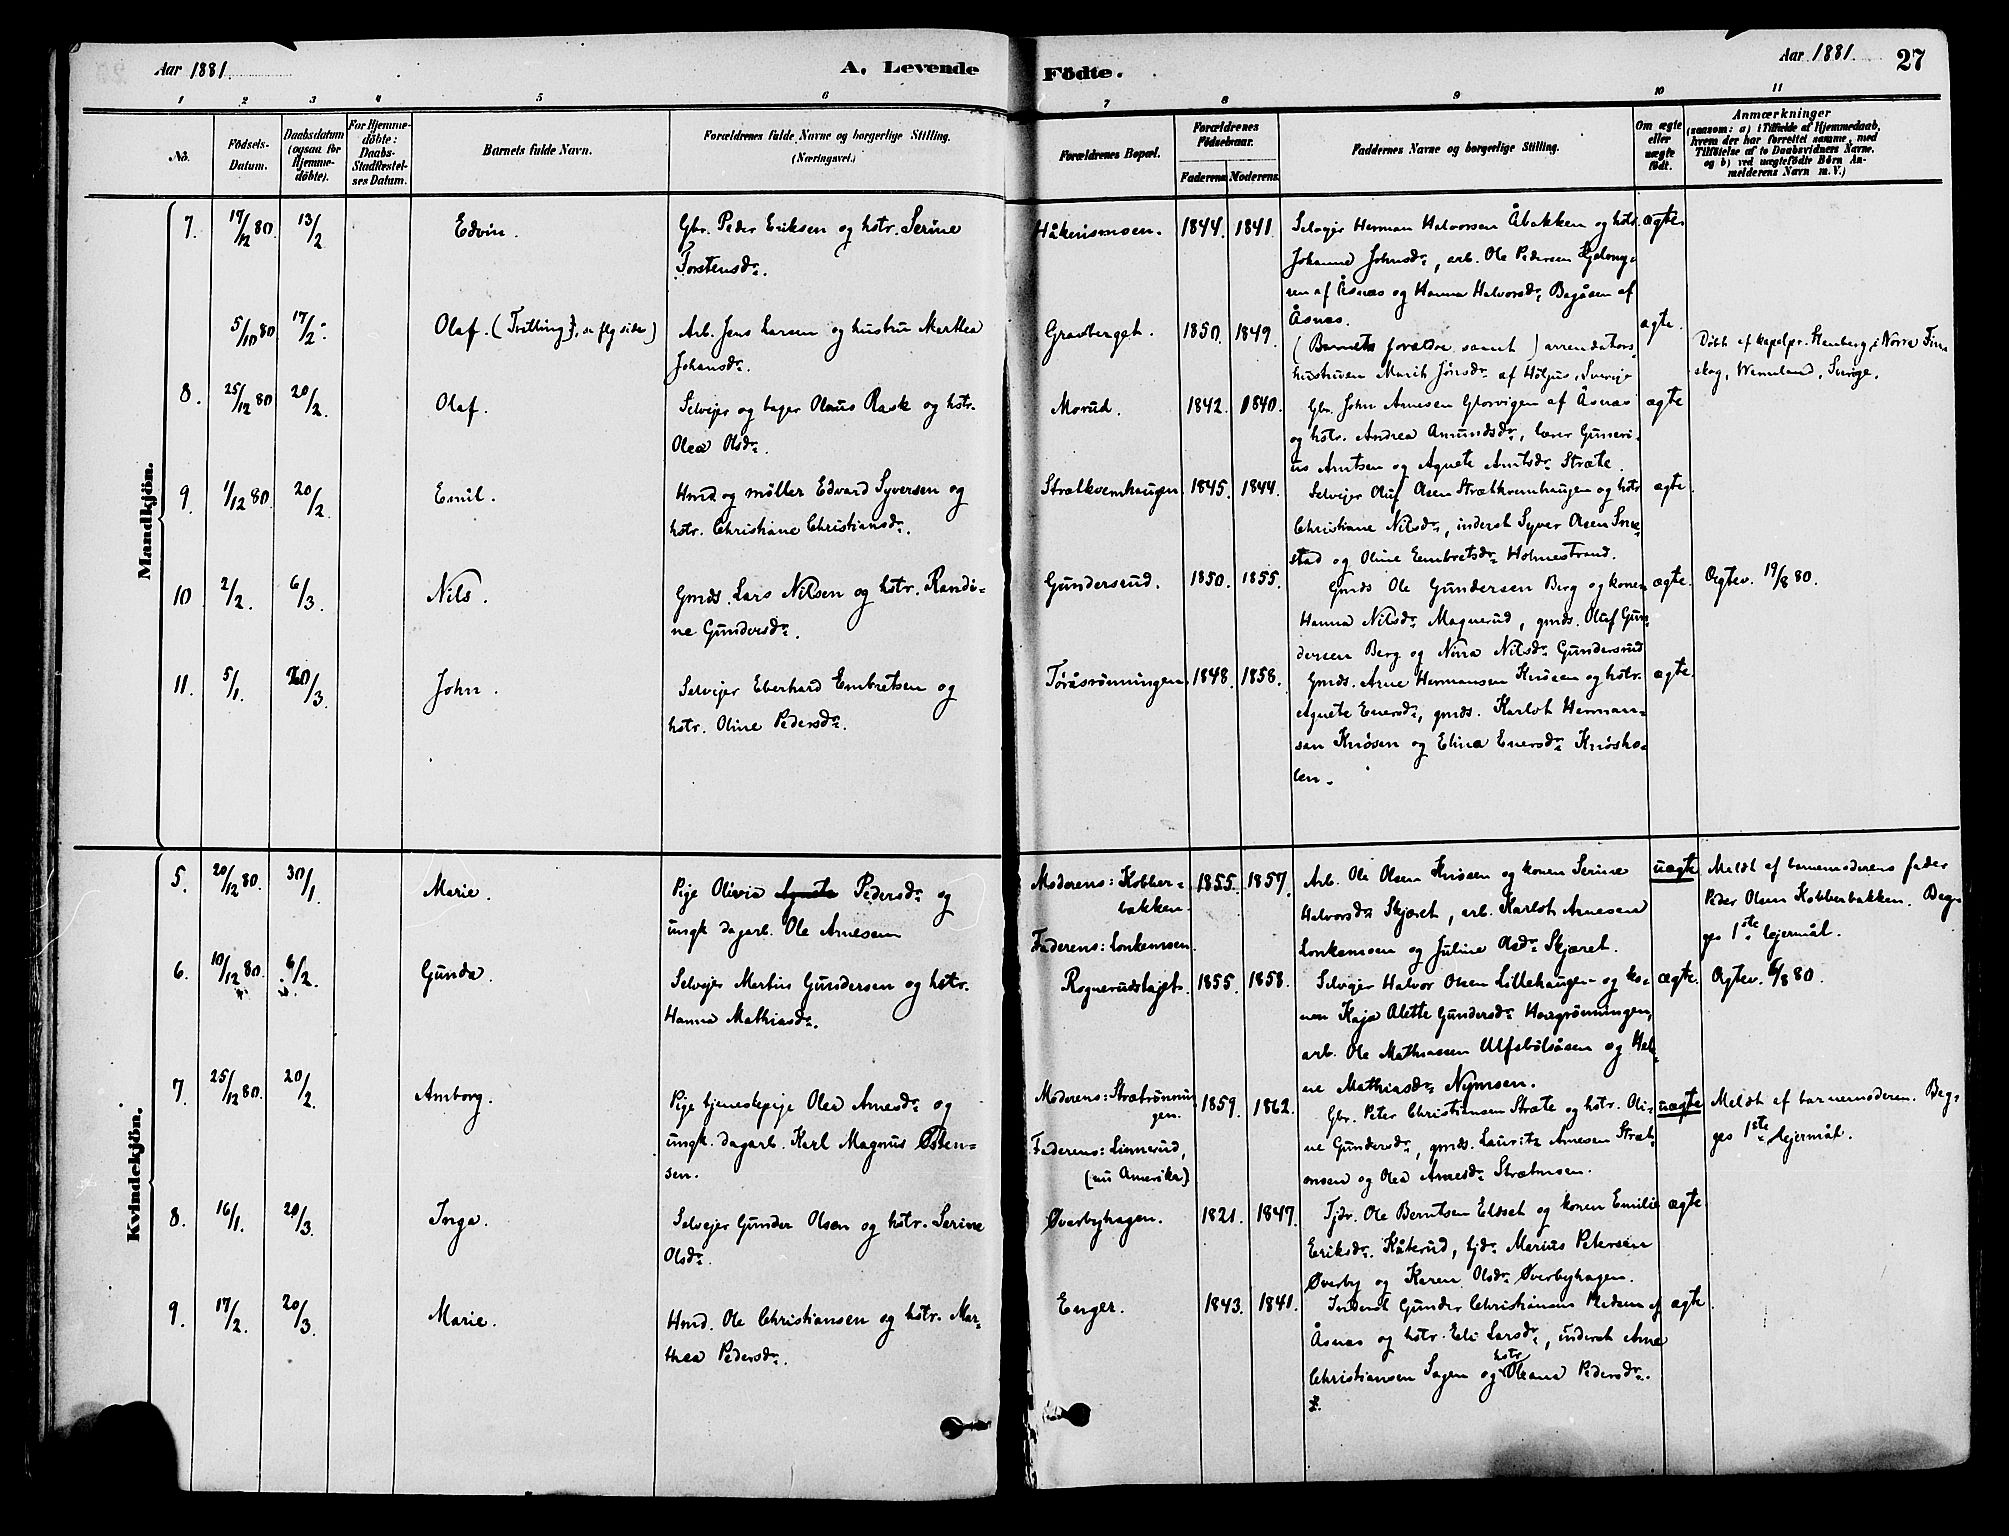 Aar 1881.
A. Levende Födte.
Aar 1881.
27
1 2 3 4 5 6 7 8 9 10 11
No.
Födsels-Datum.
Daabsdatum (ogsaa for Hjemme-döbte).
For Hjemme-döbte: Daabs-Stadfæstel-ses Datum.
Barnets fulde Navn.
Forældrenes fulde Navne og borgerlige Stilling.
(Næringsvei.)
Forældrenes Bopæl.
Forældrenes Födselsaar.
Faderens. Moderens.
Faddernes Navne og borgerlige Stilling.
Om ægte eller uægte født.
Anmærkninger
(saasom: a) i Tilfælde af Hjemmedaab, hvem der har forrettet samme, med Tilföielse af to Daabsvidners Navne, og b) ved uægtefödte Börn An-melderens Navn m. V.)
Mandkjön.
7. 17/12 80. 13/2 Edvin. Gbr. Peder Eriksen og hstr. Serine
Torstensdr.
Håkerismoen. 1844. 1841. Selvejer Herman Halvorsen Åbakken og hstr. ægte.
Johanne Johnsdr, arb. Ole Pedersen
sen af Åsnæs og Hanna Halvorsdr Bagåsen af
Åsnæs.
5/10 80 17/2. Olaf. (Trilling}, se flg side) Arb. Jens Larsen og hustru Marthea
Johansdr.
Gravberget. 1850. 1849. (Barnets forældre samt) arrendators- ægte.
hustruen Marit Jönsdr af Höljes, Sverige
Døbt af kapelpr. Stenberg i Norra Finn
skog, Wermland, Sverige.
8. 25/12 80 20/2. Olaf. Selvejer og bager Olaus Rask og hstr.
Olea Olsdr.
Morud. 1842. 1840. Gbr. John Arnesen Glorvigen af Åsnæs ægte
og hstr. Andrea Amundsdr, lærer Guneri-
us Arntsen og Agnete Arntsdr Stræte.
9. 1/12 80. 20/2 Emil. Hmd og møller Edvard Syversen og
hstr. Christiane Christiansdr.
Strætkvernhaugen. 1845. 1844. Selvejer Oluf Olsen Strætkvernhaugen og hstr ægte.
Christiane Nilsdr, inderst Syver Olsen Sne-
stad og Oline Embretsdr Holmestrand.
10 2/2. 6/3. Nils. Gmds. Lars Nilsen og hstr. Randi-
ne Gundersdr.
Gundersrud. 1850. 1855. Gmds Ole Gundersen Berg og konen ægte. Ægtev. 19/8 80.
Hanna Nilsdr Magnerud, gmds. Oluf Gun-
dersen Berg og Nirra Nilsdr Gundersrud
11. 5/1. 20/3. John. Selvejer Eberhard Embretsen og
hstr. Oline Pedersdr.
Toråsrønningen. 1848. 1858. Gmds. Arne Hermansen Knøsen og hstr. ægte.
Agnete Enersdr, gmds. Karlot Herman-
sen Knøsen og Elina Enersdr Knøsho-
len.
Kvindekjön.
5. 20/12 80. 30/1 Marie. Pige Olivia Agneta Pedersdr og
ungk dagarb. Ole Arnesen
Moderens: Kobber-
bakken.
Faderens: Lonkemoen.
1855. 1857. Arb. Ole Olsen Knøsen og konen Serine uægte
Halvorsdr Skjæret, arb. Karlot Arnesen
Lonkemoen og Juline Olsdr Skjæret.
Meldt af barnemoderens fader
Peder Olsen Kobberbakken. Beg-
ges 1ste lejermål.
6. 10/12 80. 6/2. Gunda. Selvejer Martin Gundersen og hstr.
Hanna Mathiasdr.
Rognerudstajet. 1855. 1858. Selvejer Halvor Olsen Lillehaugen og ko- ægte. Ægtev. 6/8 80.
nen Kaja Alette Gundersdr Haugrønningen,
arb. Ole Mathiasen Ulfsbølåsen og Hel-
ne Mathiasdr Nymoen.
7. 25/12 80. 20/2. Amborg. Pige tjenestepige Olea Arnesdr og
ungk. dagarb. Karl Magnus Østen-
sen.
Moderens: Strætrønnin
gen.
Faderens: Linnerud,
(nu Amerika)
1859. 1862. Gbr. Peter Christiansen Stræte og hstr. Oli- uægte
ne Gundersdr, gmds. Lauritz Arnesen Stræt-
omsen og Olea Arnesdr Strætmoen.
Meldt af barnemoderen. Beg-
ges 1ste lejermål.
8. 16/1. 20/3. Inga. Selvejer Gunder Olsen og hstr. Serine
Olsdr.
Øverbyhagen. 1821. 1847. Tjdr. Ole Berntsen Elsæt og konen Emilie ægte.
Eriksdr. Kåterud, tjdr Marius Petersen
Øverby og Karen Olsdr Øverbyhagen.
9. 17/2. 20/3. Marie. Hmd. Ole Christiansen og hstr. Mar-
thea Pedersdr.
Enger. 1843. 1841. Inderst Gunder Christiansen af ægte.
Åsnæs og hstr. Eli Larsdr, inderst Arne
Christiansen Sagen og hstr Oleana Pedersdr.